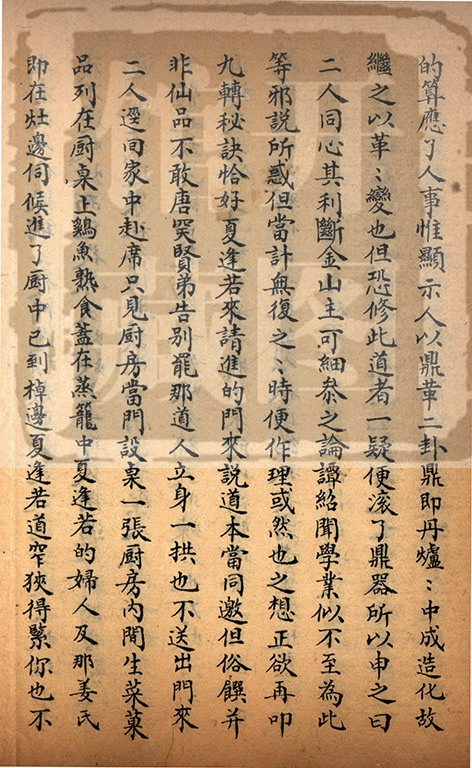 的算應了人事惟顯示人以鼎革二卦鼎即丹爐〻中成造化故
繼之以革〻變也但恐修此道者一疑便滾了鼎器所以申之曰
二人同心其利斷金山主可細叅之論譚紹聞學業似不至為此
等邪說所惑但當計無復之〻時便作理或然也之想正欲再叩
九轉秘訣恰好夏逢若來請進的門來說道本當同邀但俗饌并
非仙品不敢唐突賢弟告別罷那道人立身一拱也不送出門來
二人逕回家中赴席只見厨房當門設桌一張厨房內閙生菜菓
品列在厨桌上鷄魚熟食蓋在蒸籠中夏逢若的婦人及那姜氏
即在灶邊伺候進了厨中已到棹邊夏逢若道窄狹得緊你也不